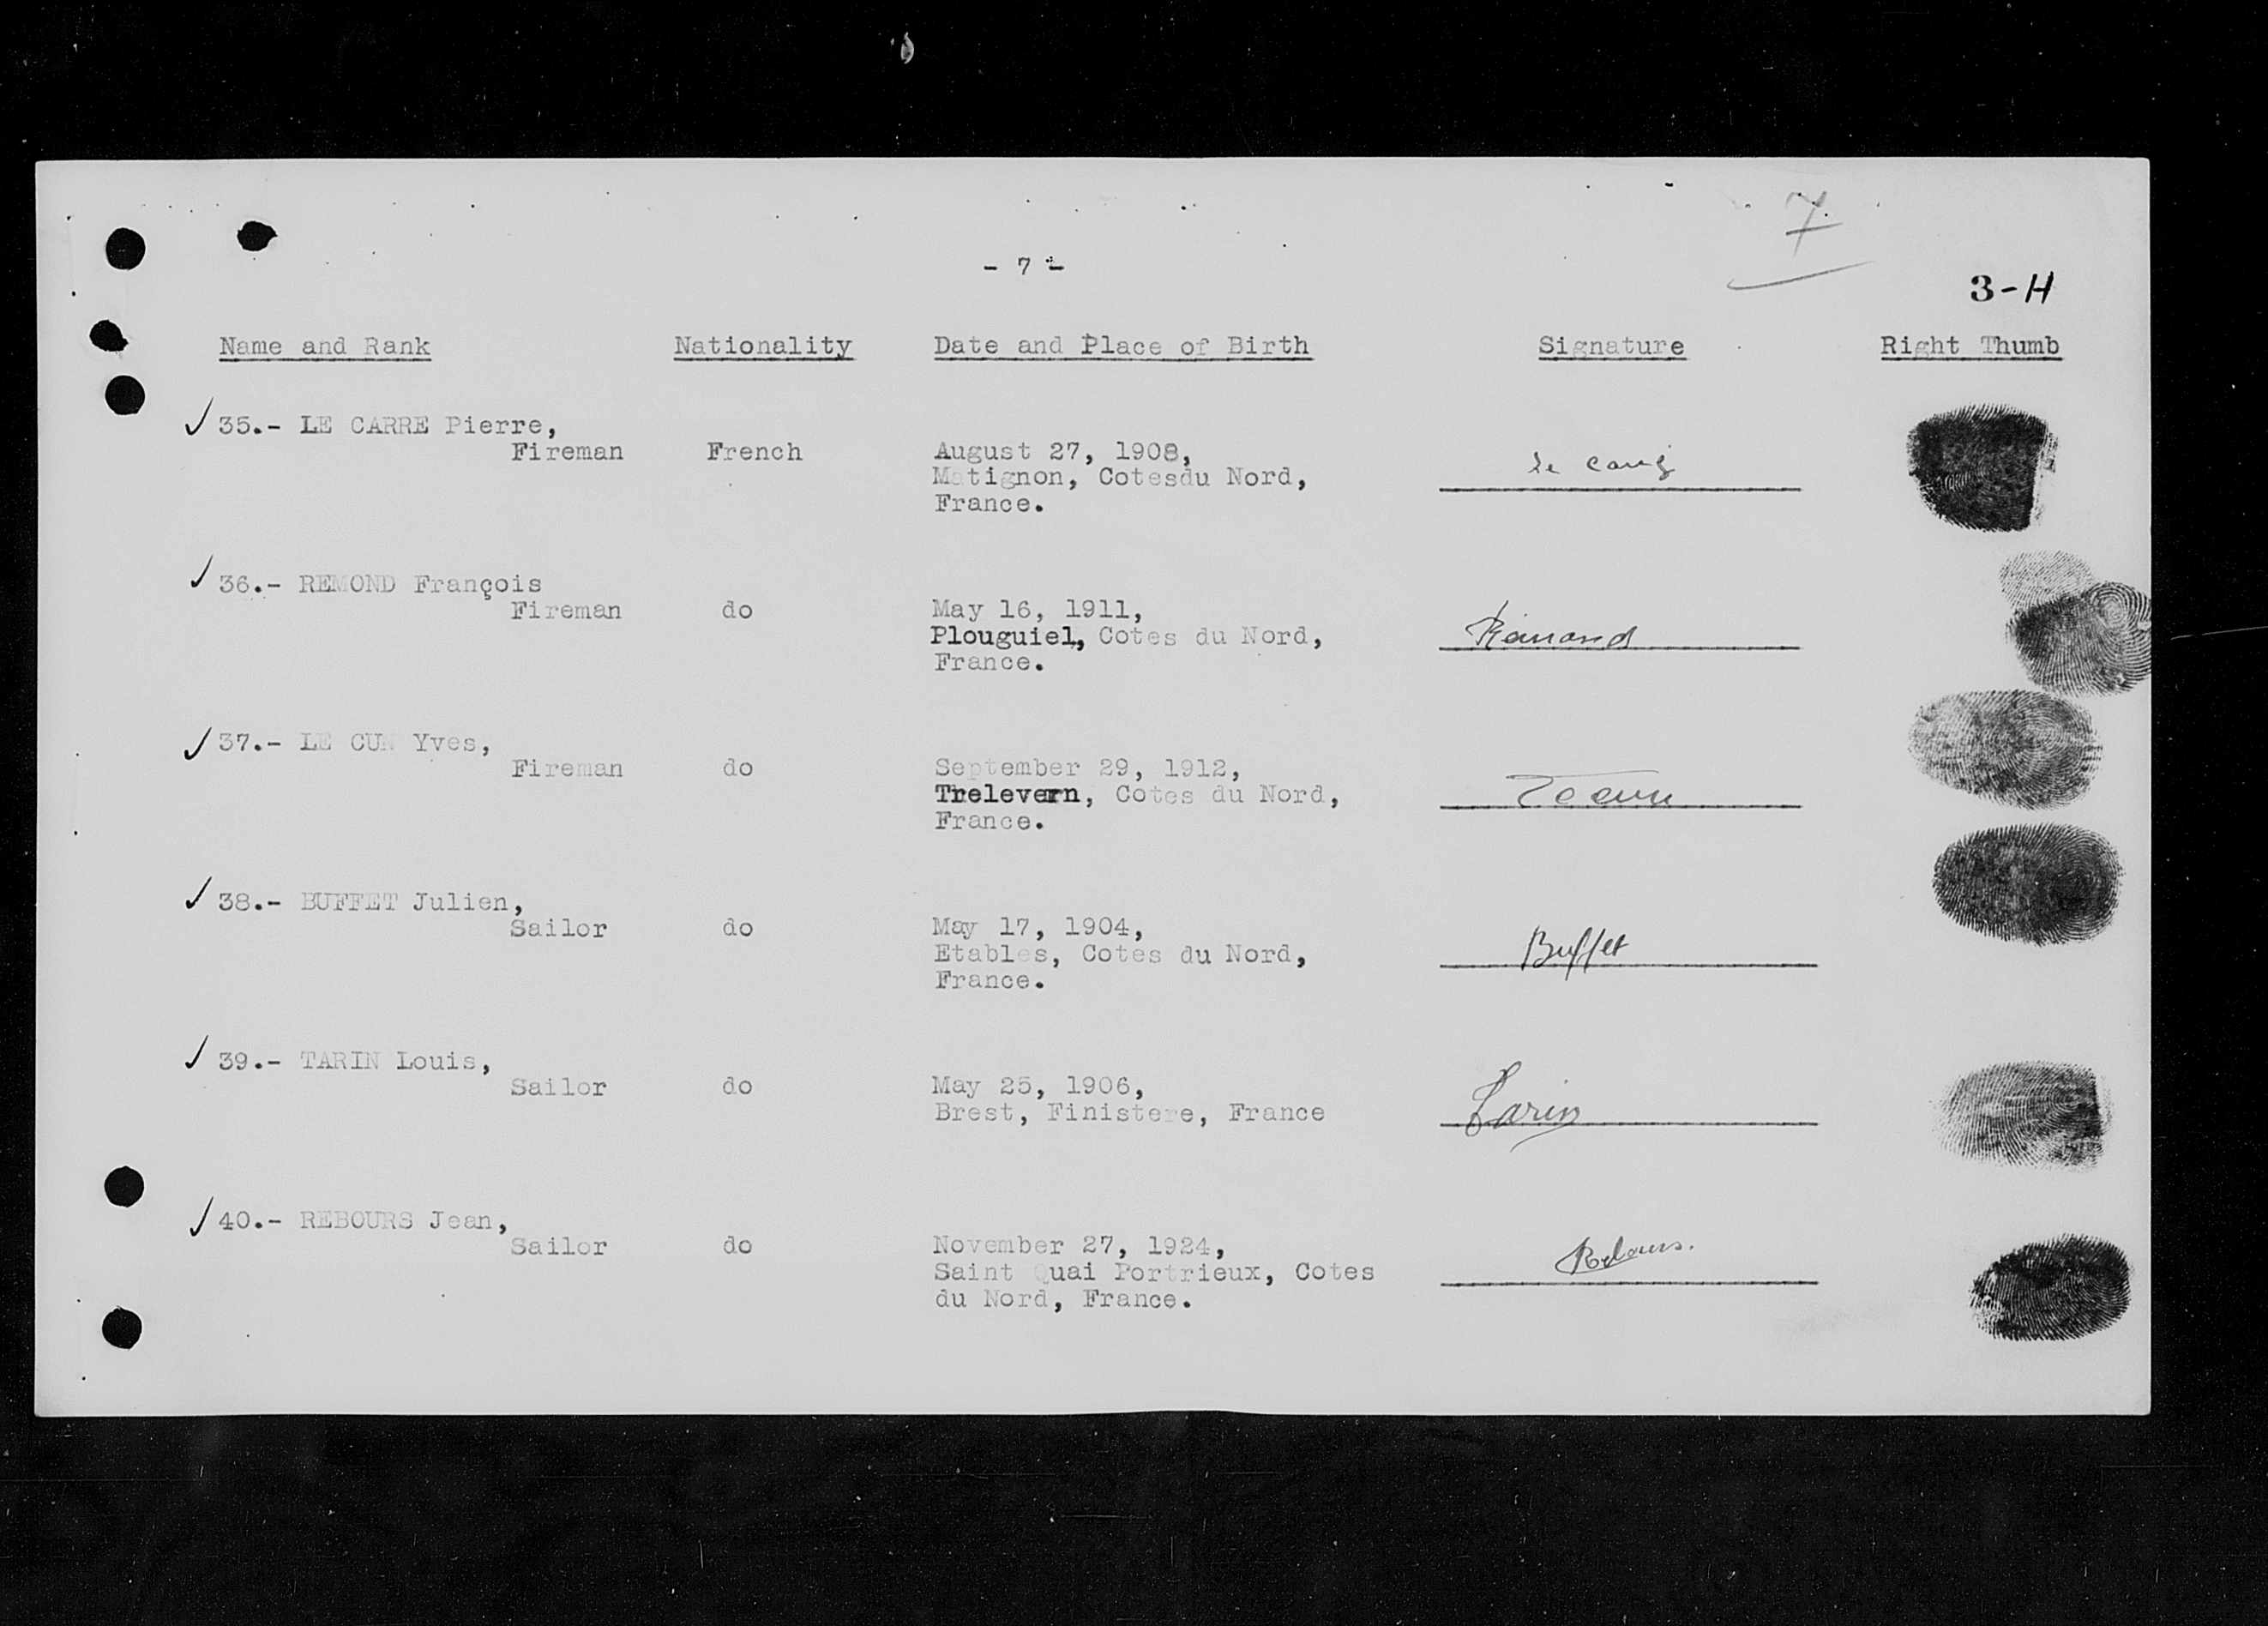 7
- 7 -
3-H
Name and Rank Nationality Date and Place of Birth Signature Right Thumb
✓ 35.- LE CARRE Pierre,
Fireman French August 27, 1908,
Matignon, Cotesdu Nord,
France.
✓ 36.- REMOND François
Fireman do May 16, 1911,
Plouguiel, Cotes du Nord, Rémond
France.
✓ 37.- LE CUN Yves,
Fireman do September 29, 1912,
Trelevern, Cotes du Nord,
France.
✓ 38.- BUFFET Julien,
Sailor do May 17, 1904,
Etables, Cotes du Nord, Buffet
France.
✓ 39.- TARIN Louis,
Sailor do May 25, 1906,
Brest, Finistere, France Tarin
✓ 40.- REBOURS Jean,
Sailor do November 27, 1924, Rebours.
Saint Quai Portrieux, Cotes
du Nord, France.